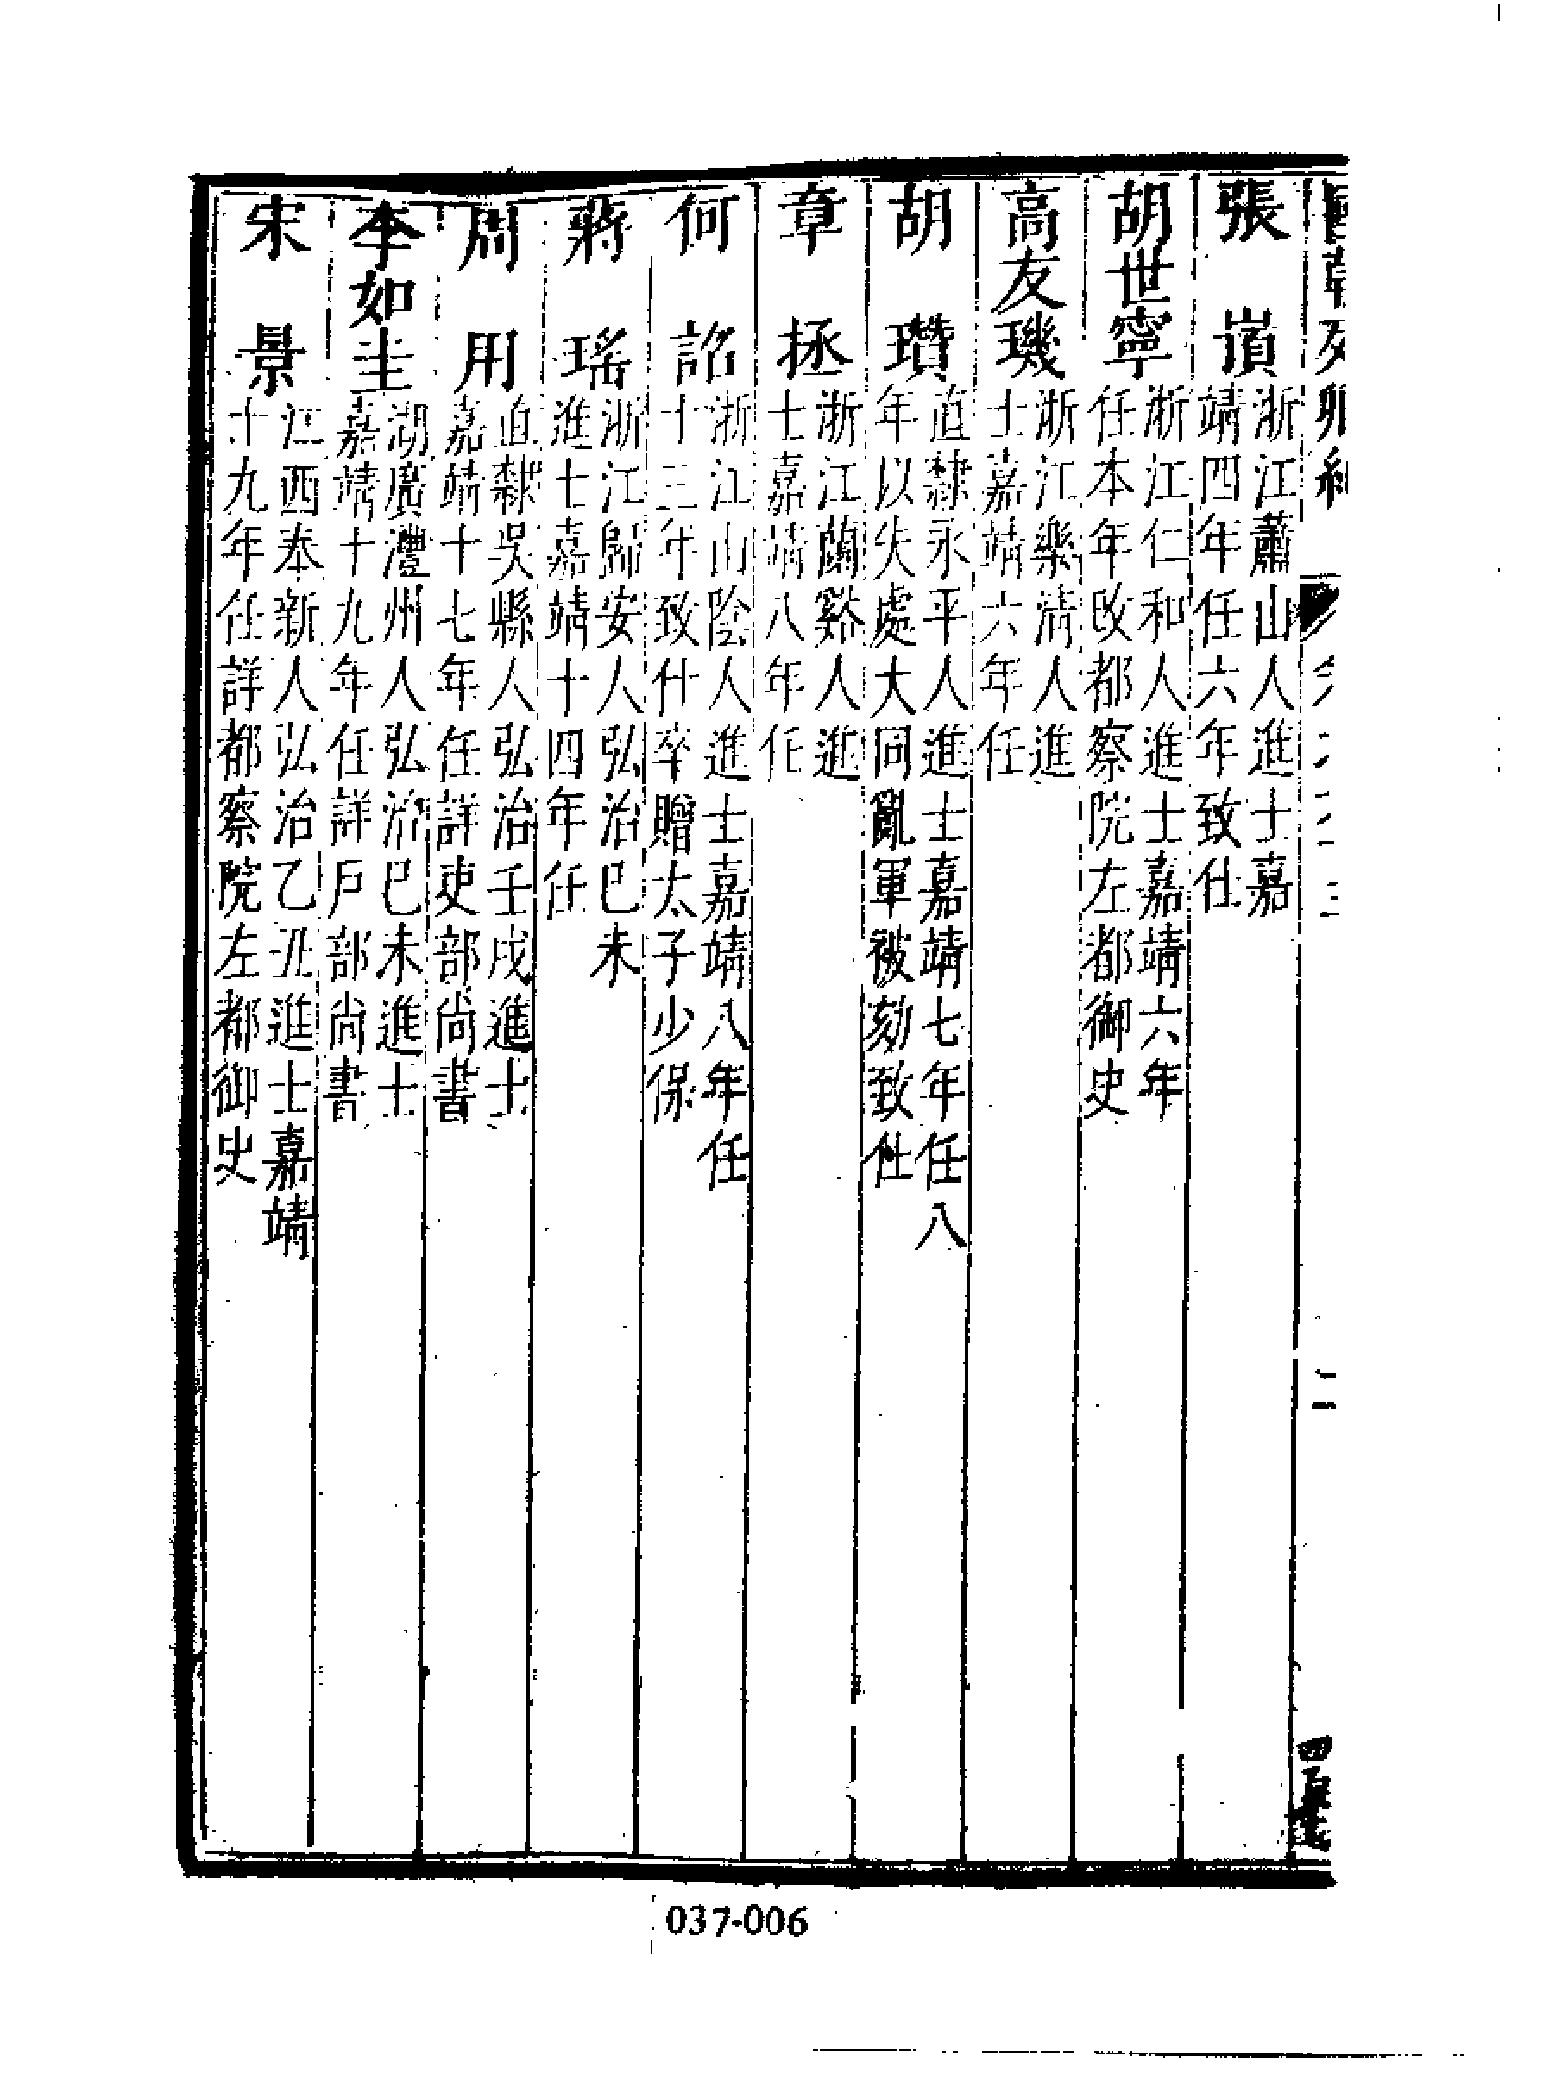 張 嵿
浙江蕭山人進士嘉
靖四年任六年致仕
胡世寧
浙江仁和人進士嘉靖六年
任本年改都察院左都御史
高友璣
浙江樂清人進
士嘉靖六年任
胡 瓚
直隸永平人進士嘉靖七年任八
年以失處大同亂軍被劾致仕
章 拯
浙江蘭谿人進
士嘉靖八年任
何 詔
浙江山陰人進士嘉靖八年任
十三年致仕卒贈太子少保
蔣 瑤
浙江歸安人弘治己未
進士嘉靖十四年任
周 用
直隸吳縣人弘治壬戌進士
嘉靖十七年任詳吏部尚書
李如圭
湖廣灃州人弘治己未進士
嘉靖十九年任詳戶部尚書
宋 景
江西奉新人弘治乙丑進士嘉靖
十九年任詳都察院左都御史
037-006